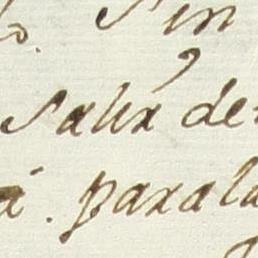 o. Sin
Salix de
a. paxala